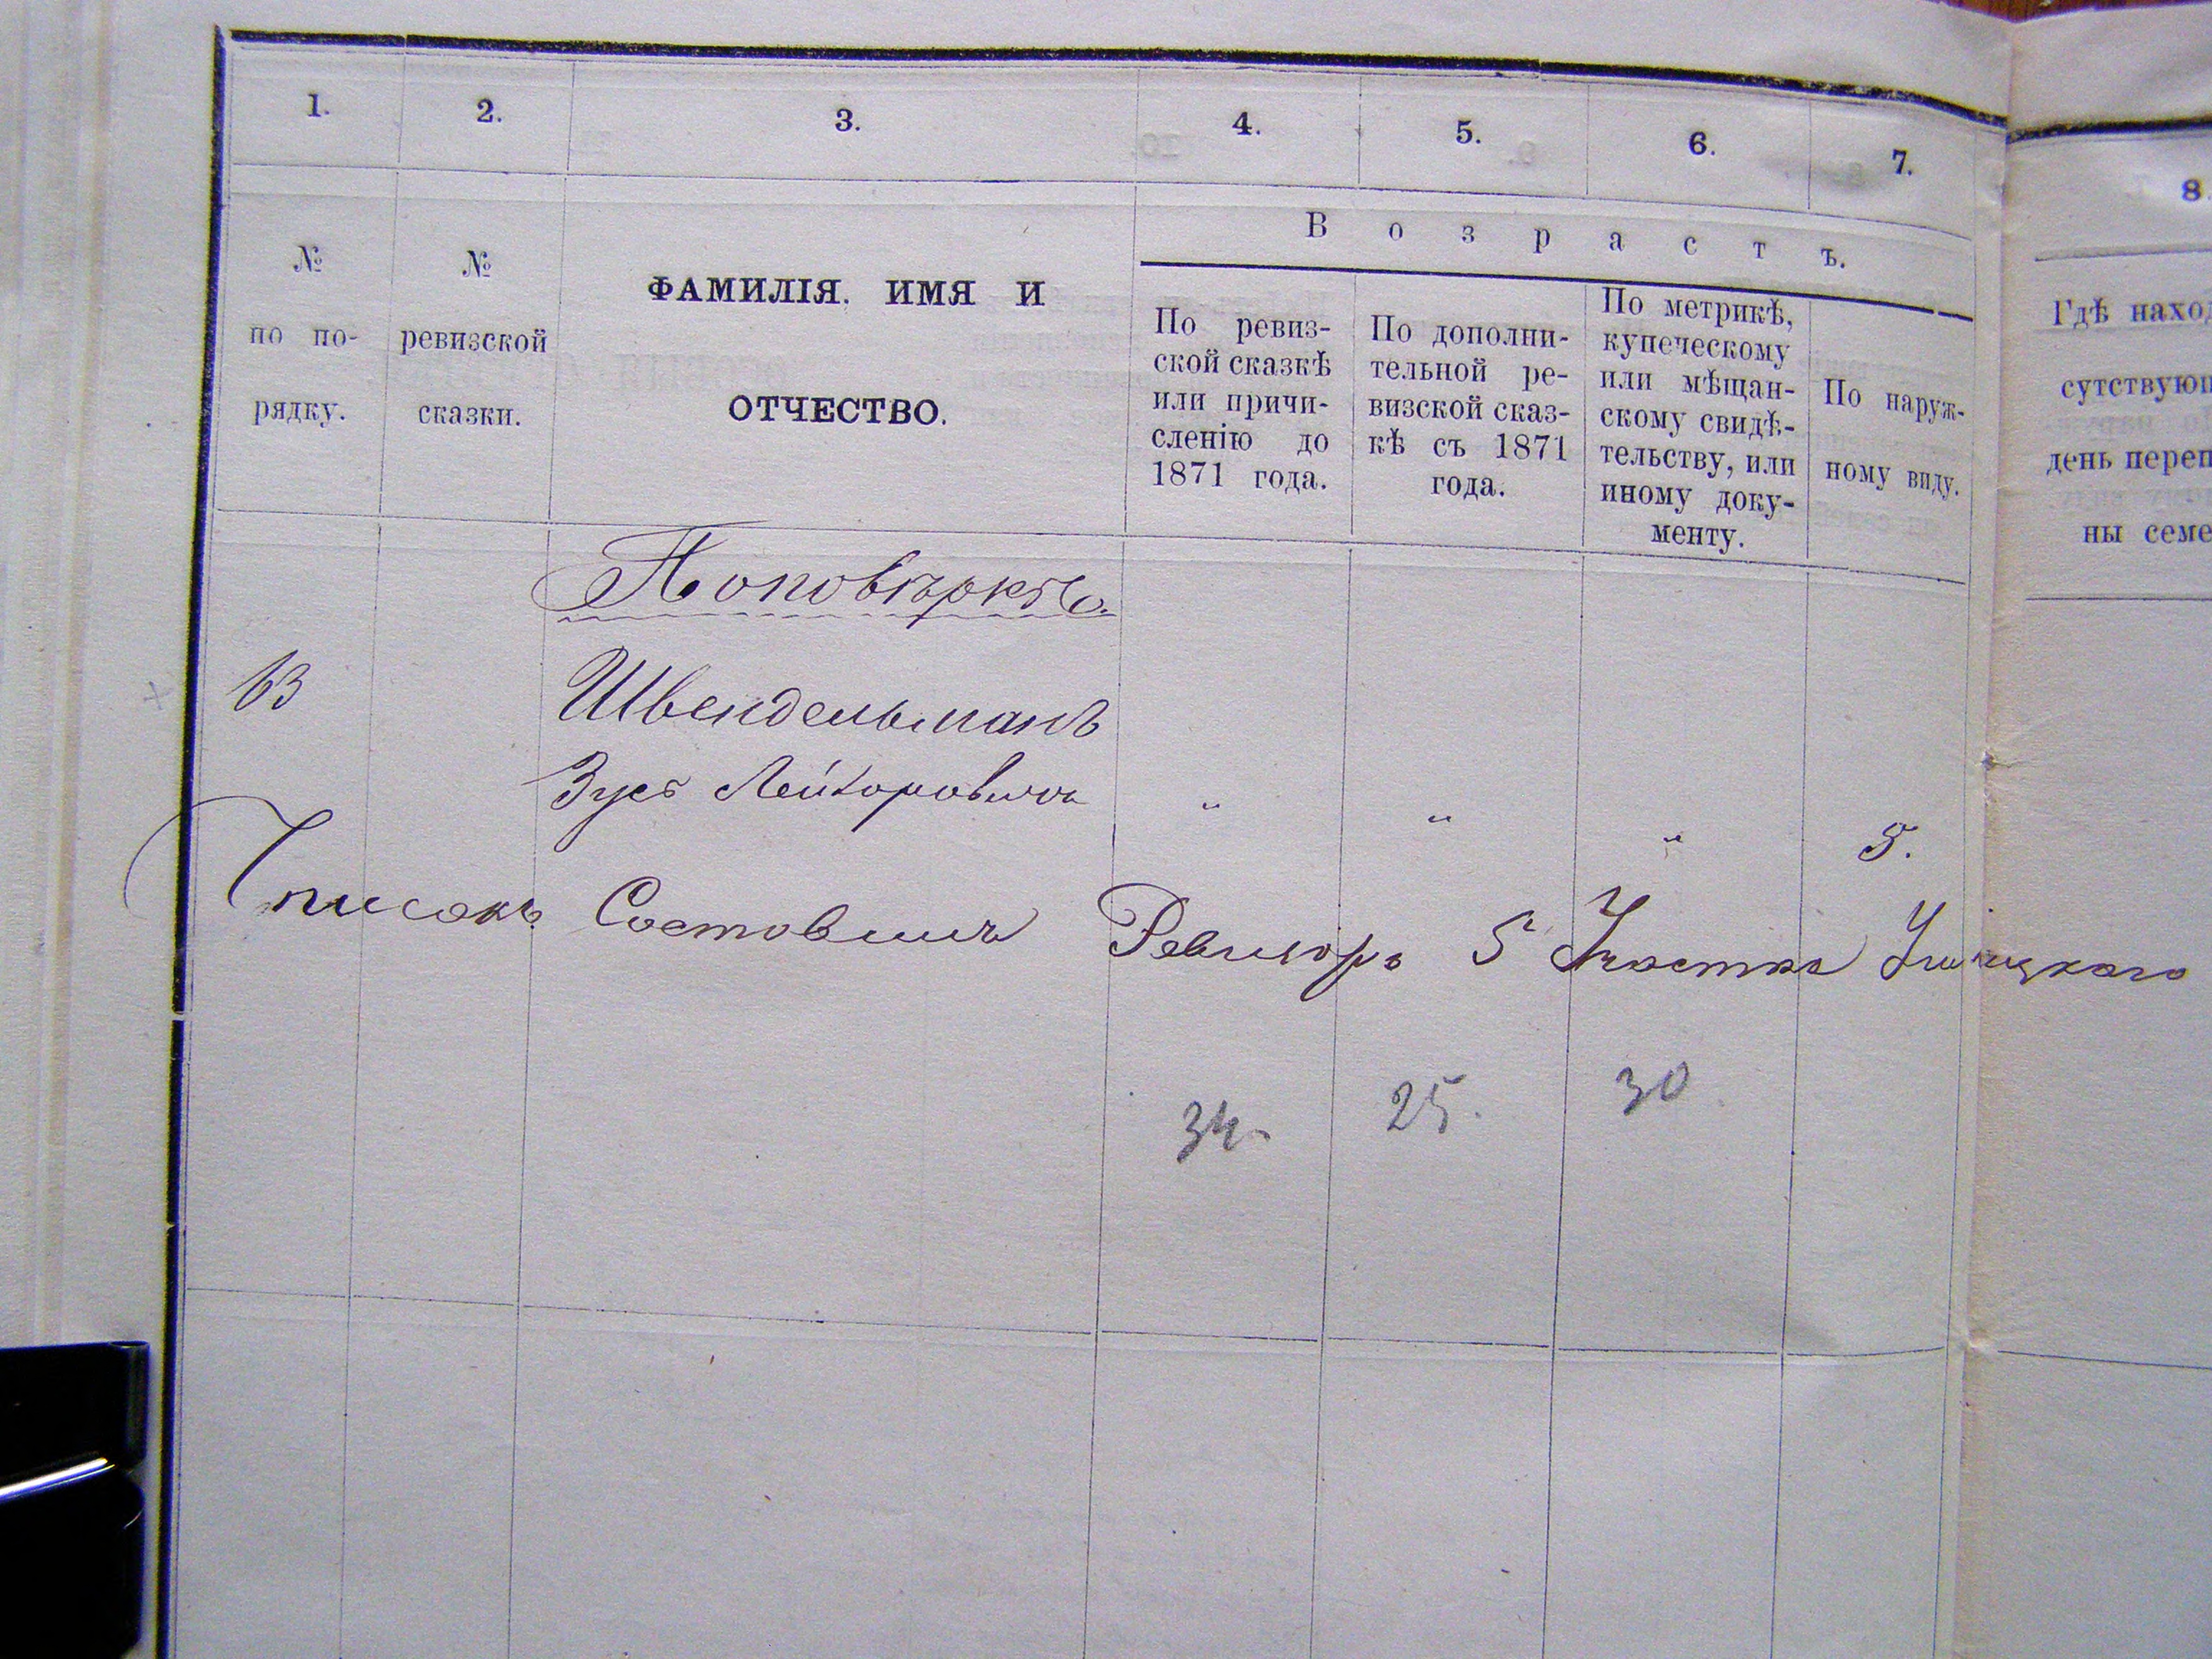 1. 2. 3. 4. 5. 6. 7. 8.
№ по по-
рядку.
№
ревизской
сказки.
ФАМИЛІЯ. ИМЯ И
ОТЧЕСТВО.
Возрастъ.
По ревиз-
ской сказкѣ
или причи-
сленію до
1871 года.
По дополни-
тельной ре-
визской сказ-
кѣ съ 1871
года.
По метрикѣ,
купеческому
или мѣщан-
скому свидѣ-
тельству, или
иному доку-
менту.
По наруж-
ному виду.
Гдѣ наход
сутствующ
день переп
ны семе
По повѣркѣ
63 Швендельманъ
Зусъ
" " " 5.
Списокъ Составилъ Ревизоръ 5 Участка Ушицкаго
34 25. 30